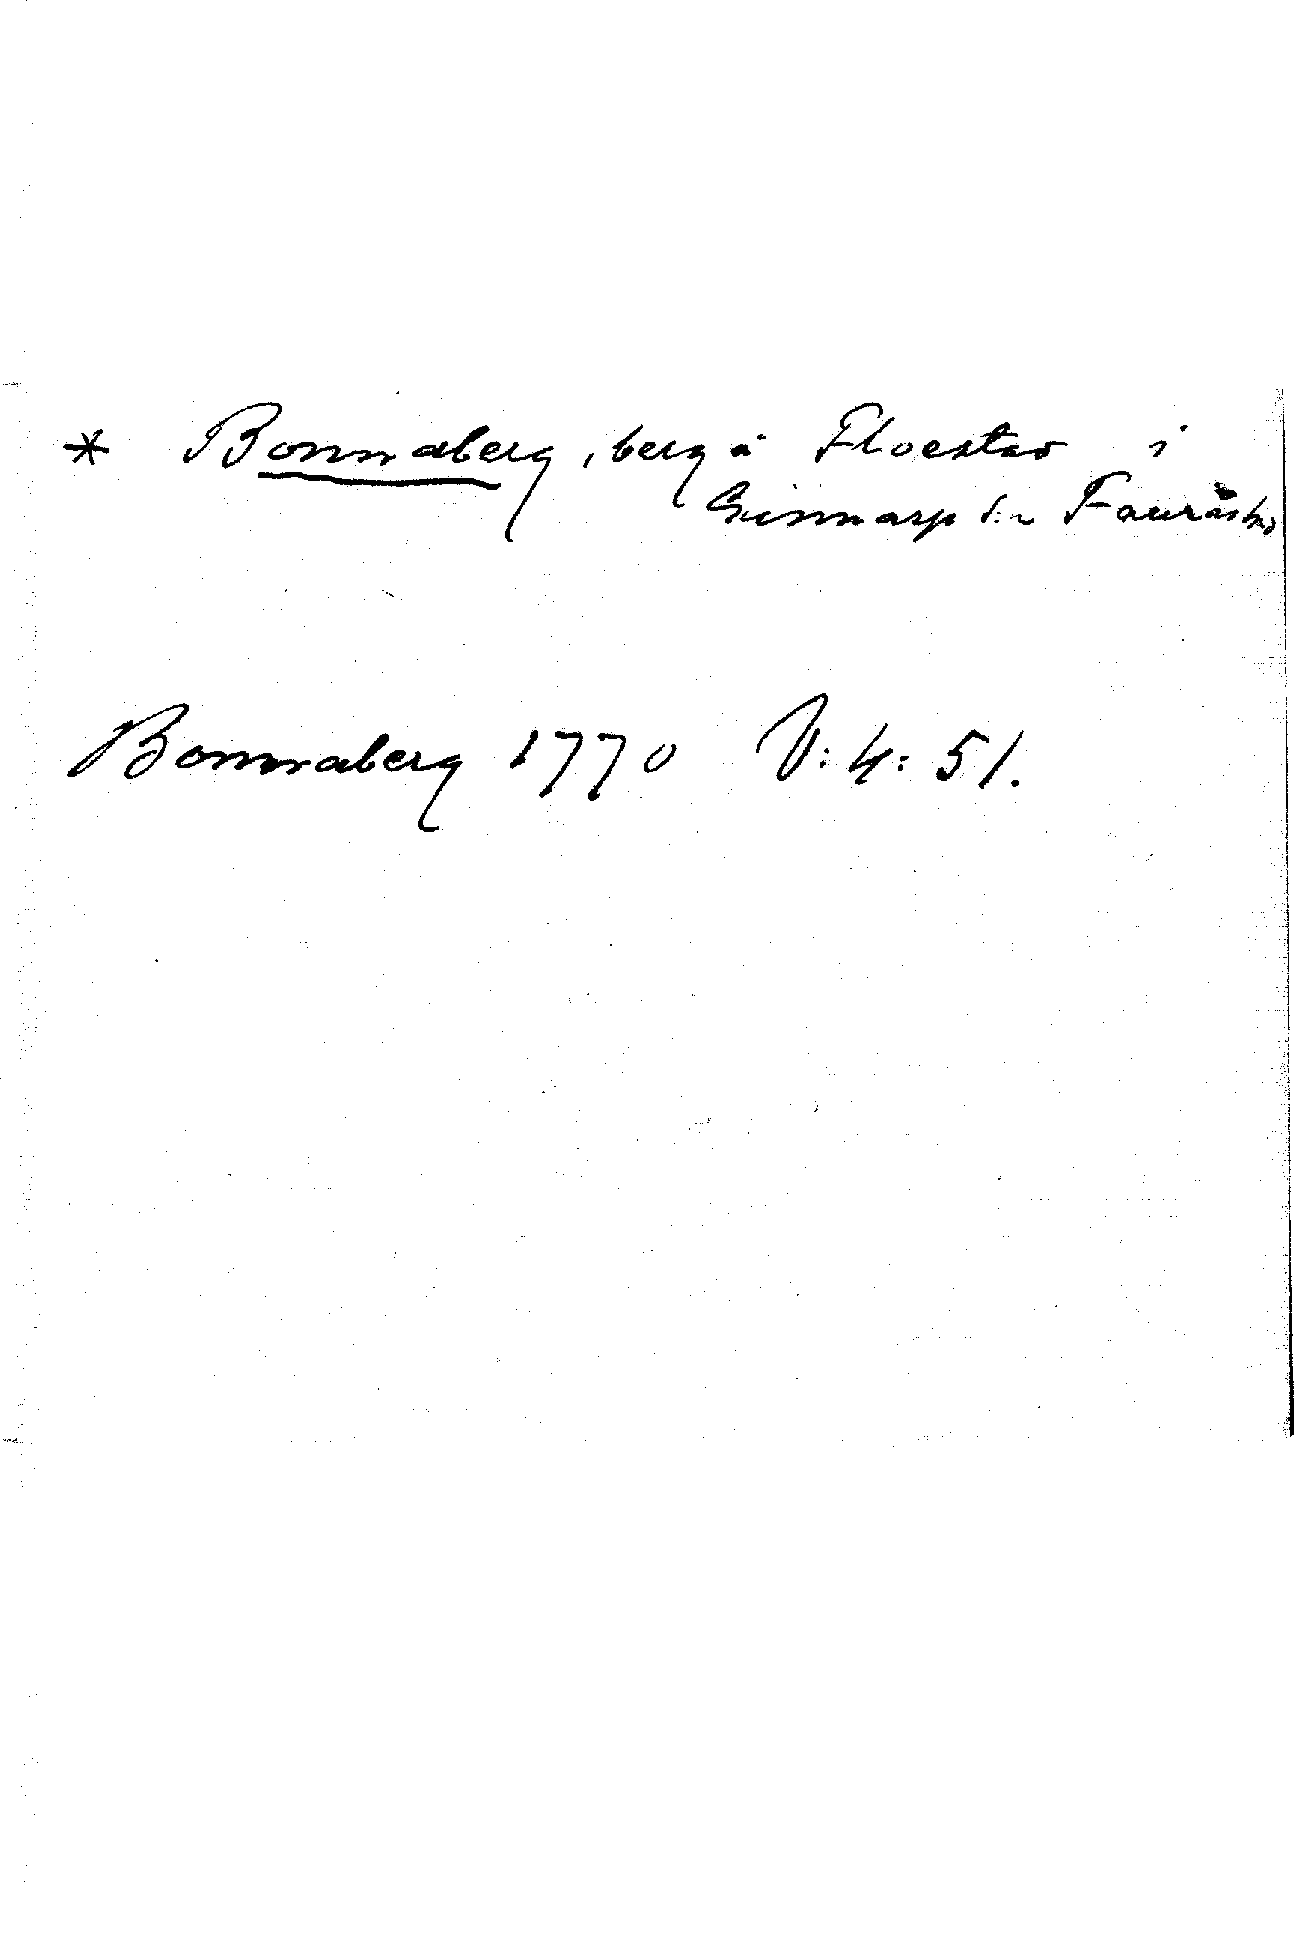 * Bonnaberg, berg å Floestad i
Ginnarp sn Faurås hd
Bonnaberg 1770 V:4:51.